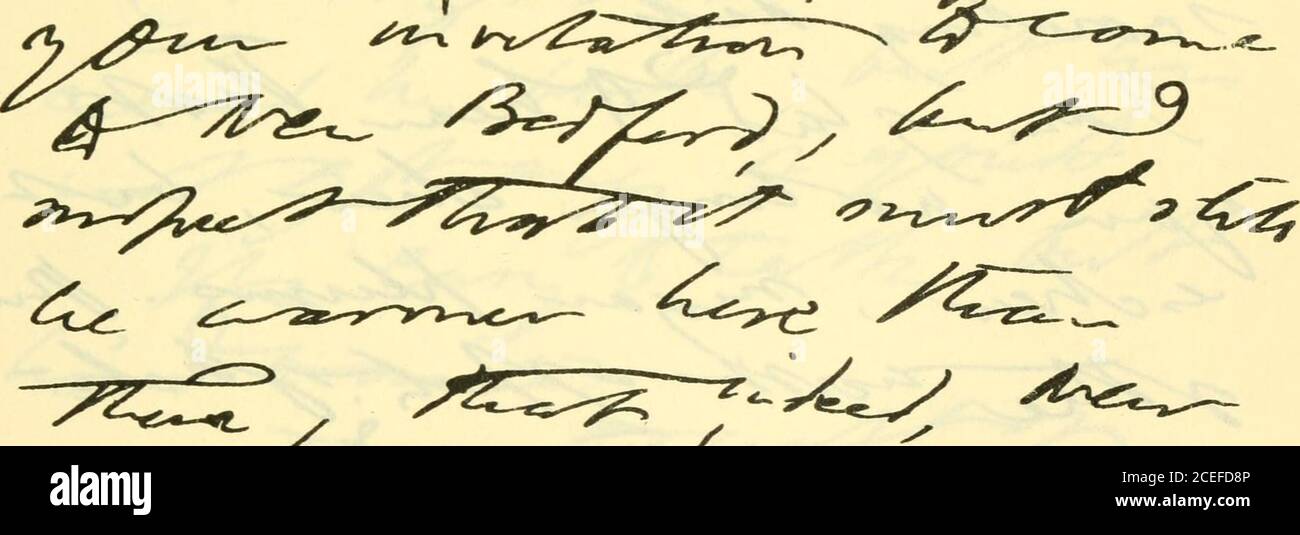 your invitation to come
to New Bedford, but I
suspect that it must still
be warmer here than
there, that, indeed, New
alamy
Image ID: 2CEFD8P
www.alamy.com